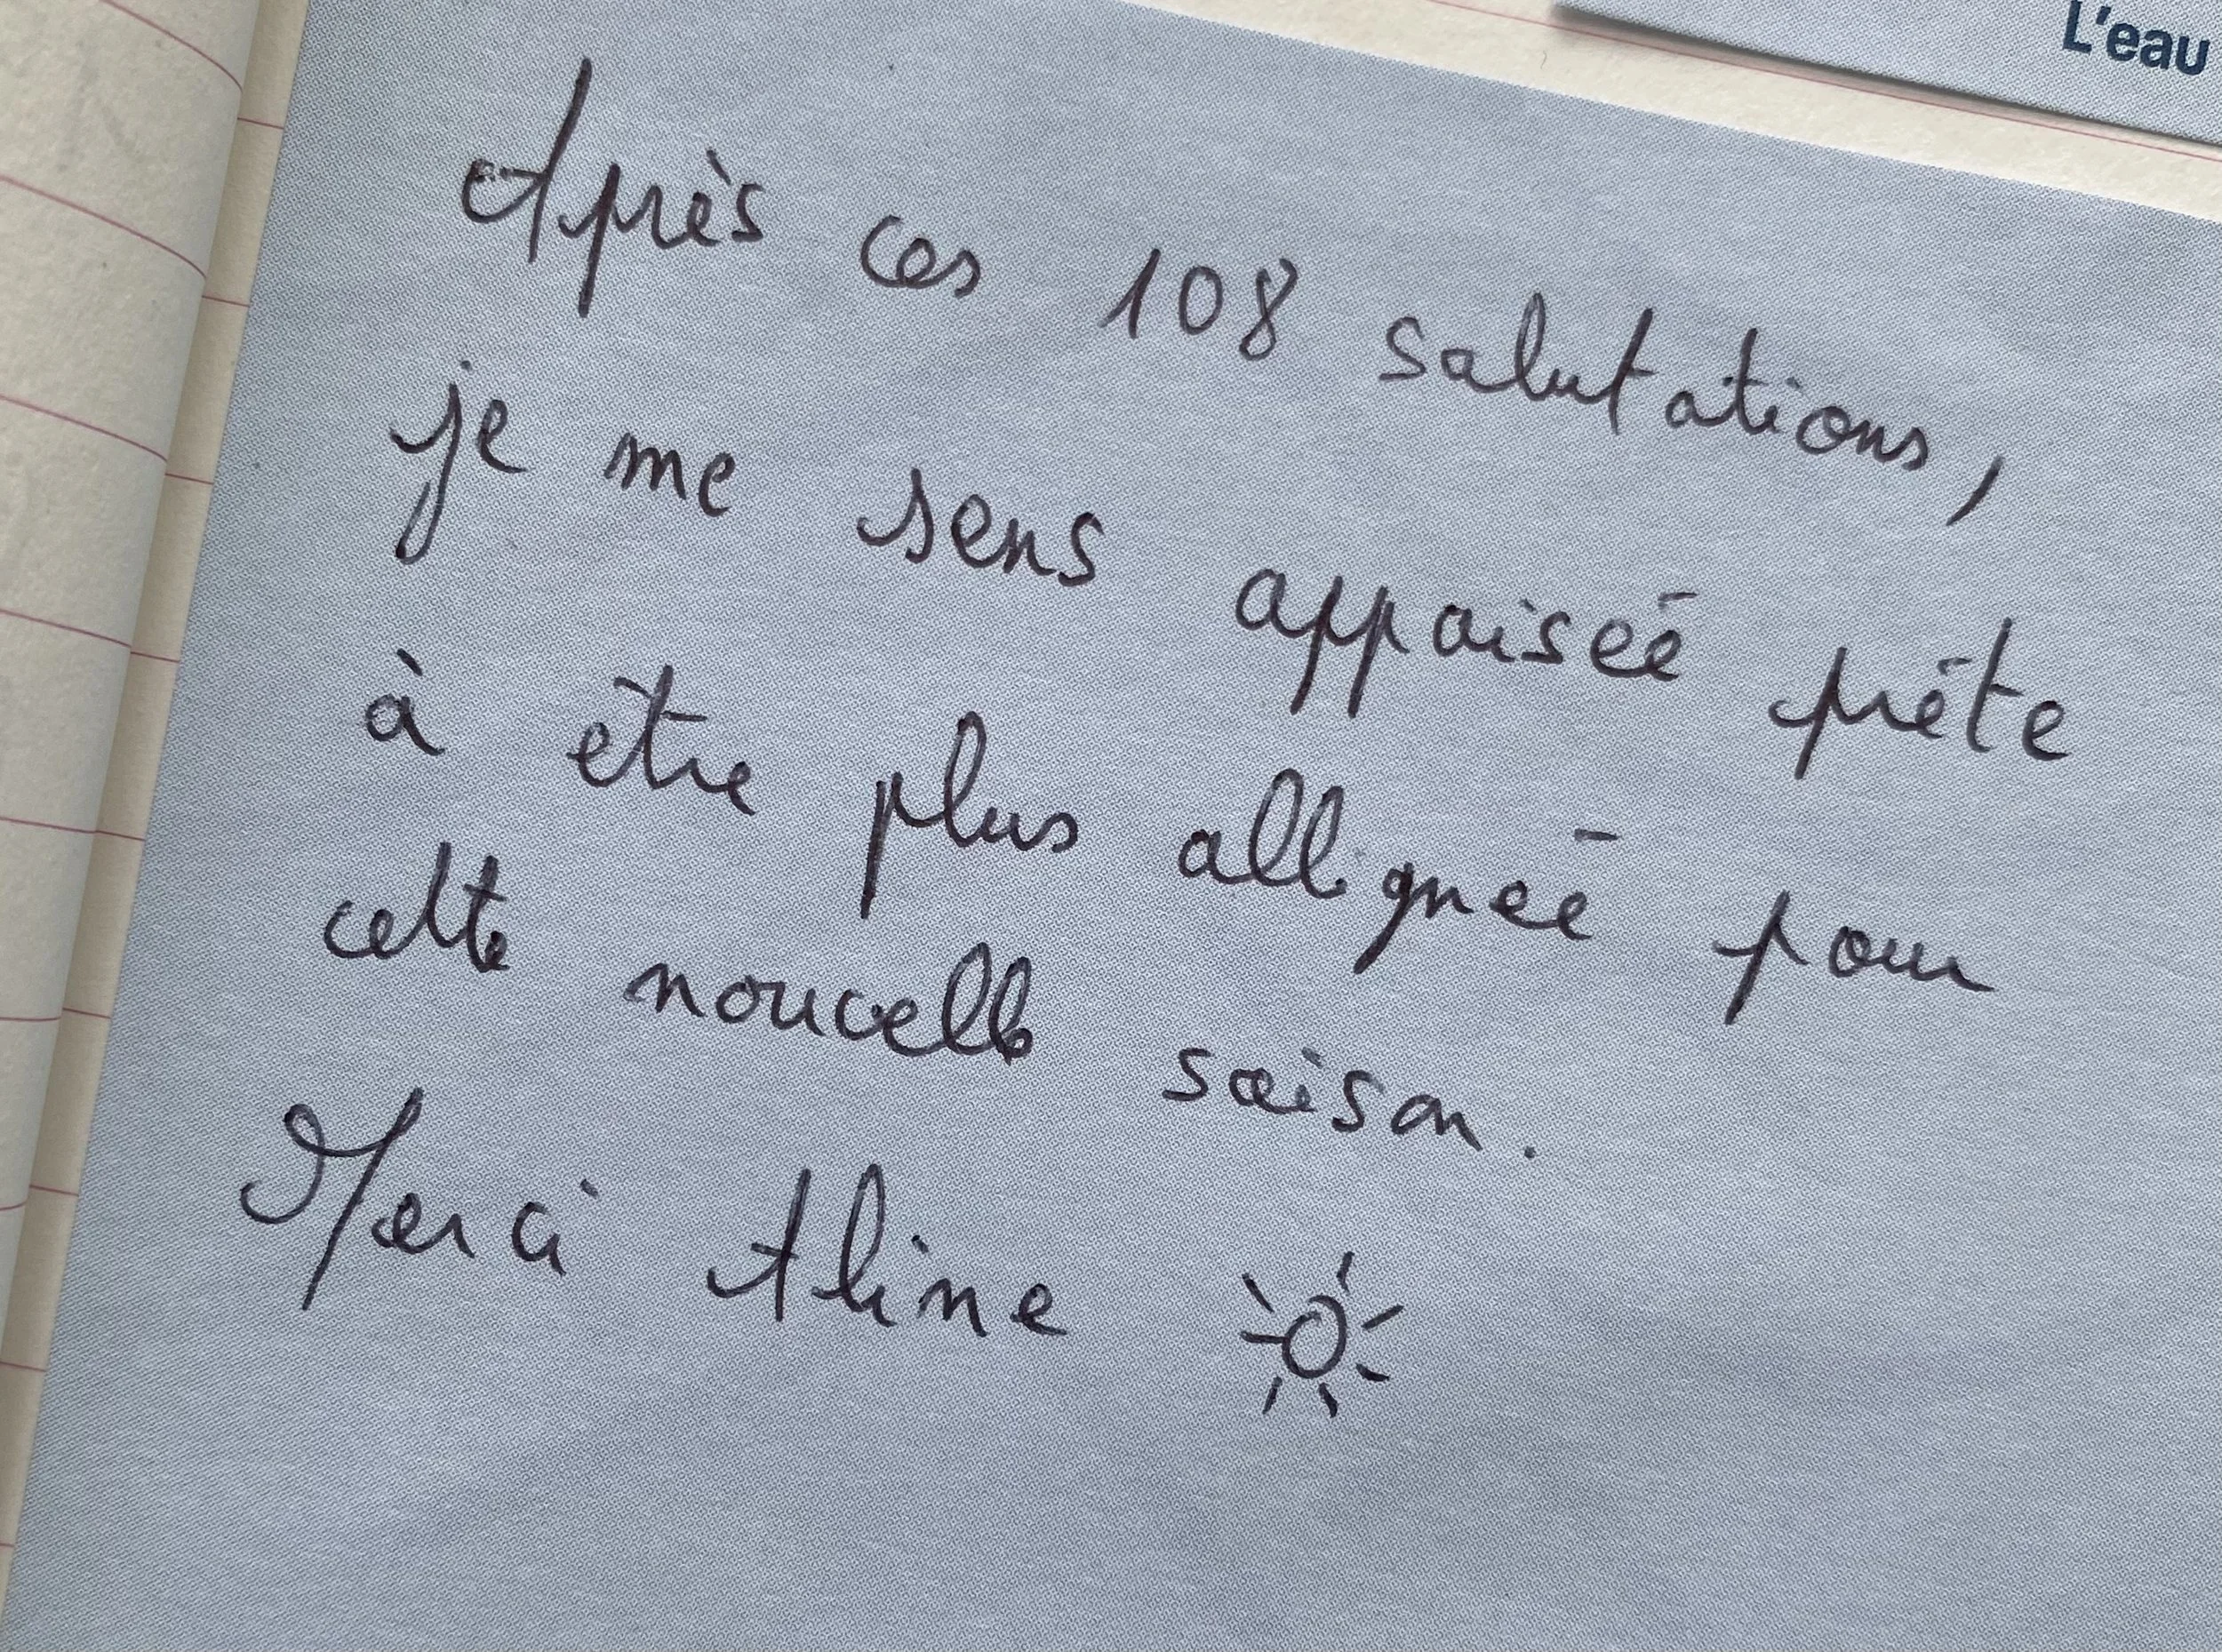 L'eau
Après ces 108 salutations,
je me sens appaisée prête
à être plus allignée pour
cette nouvelle saison.
Merci Aline